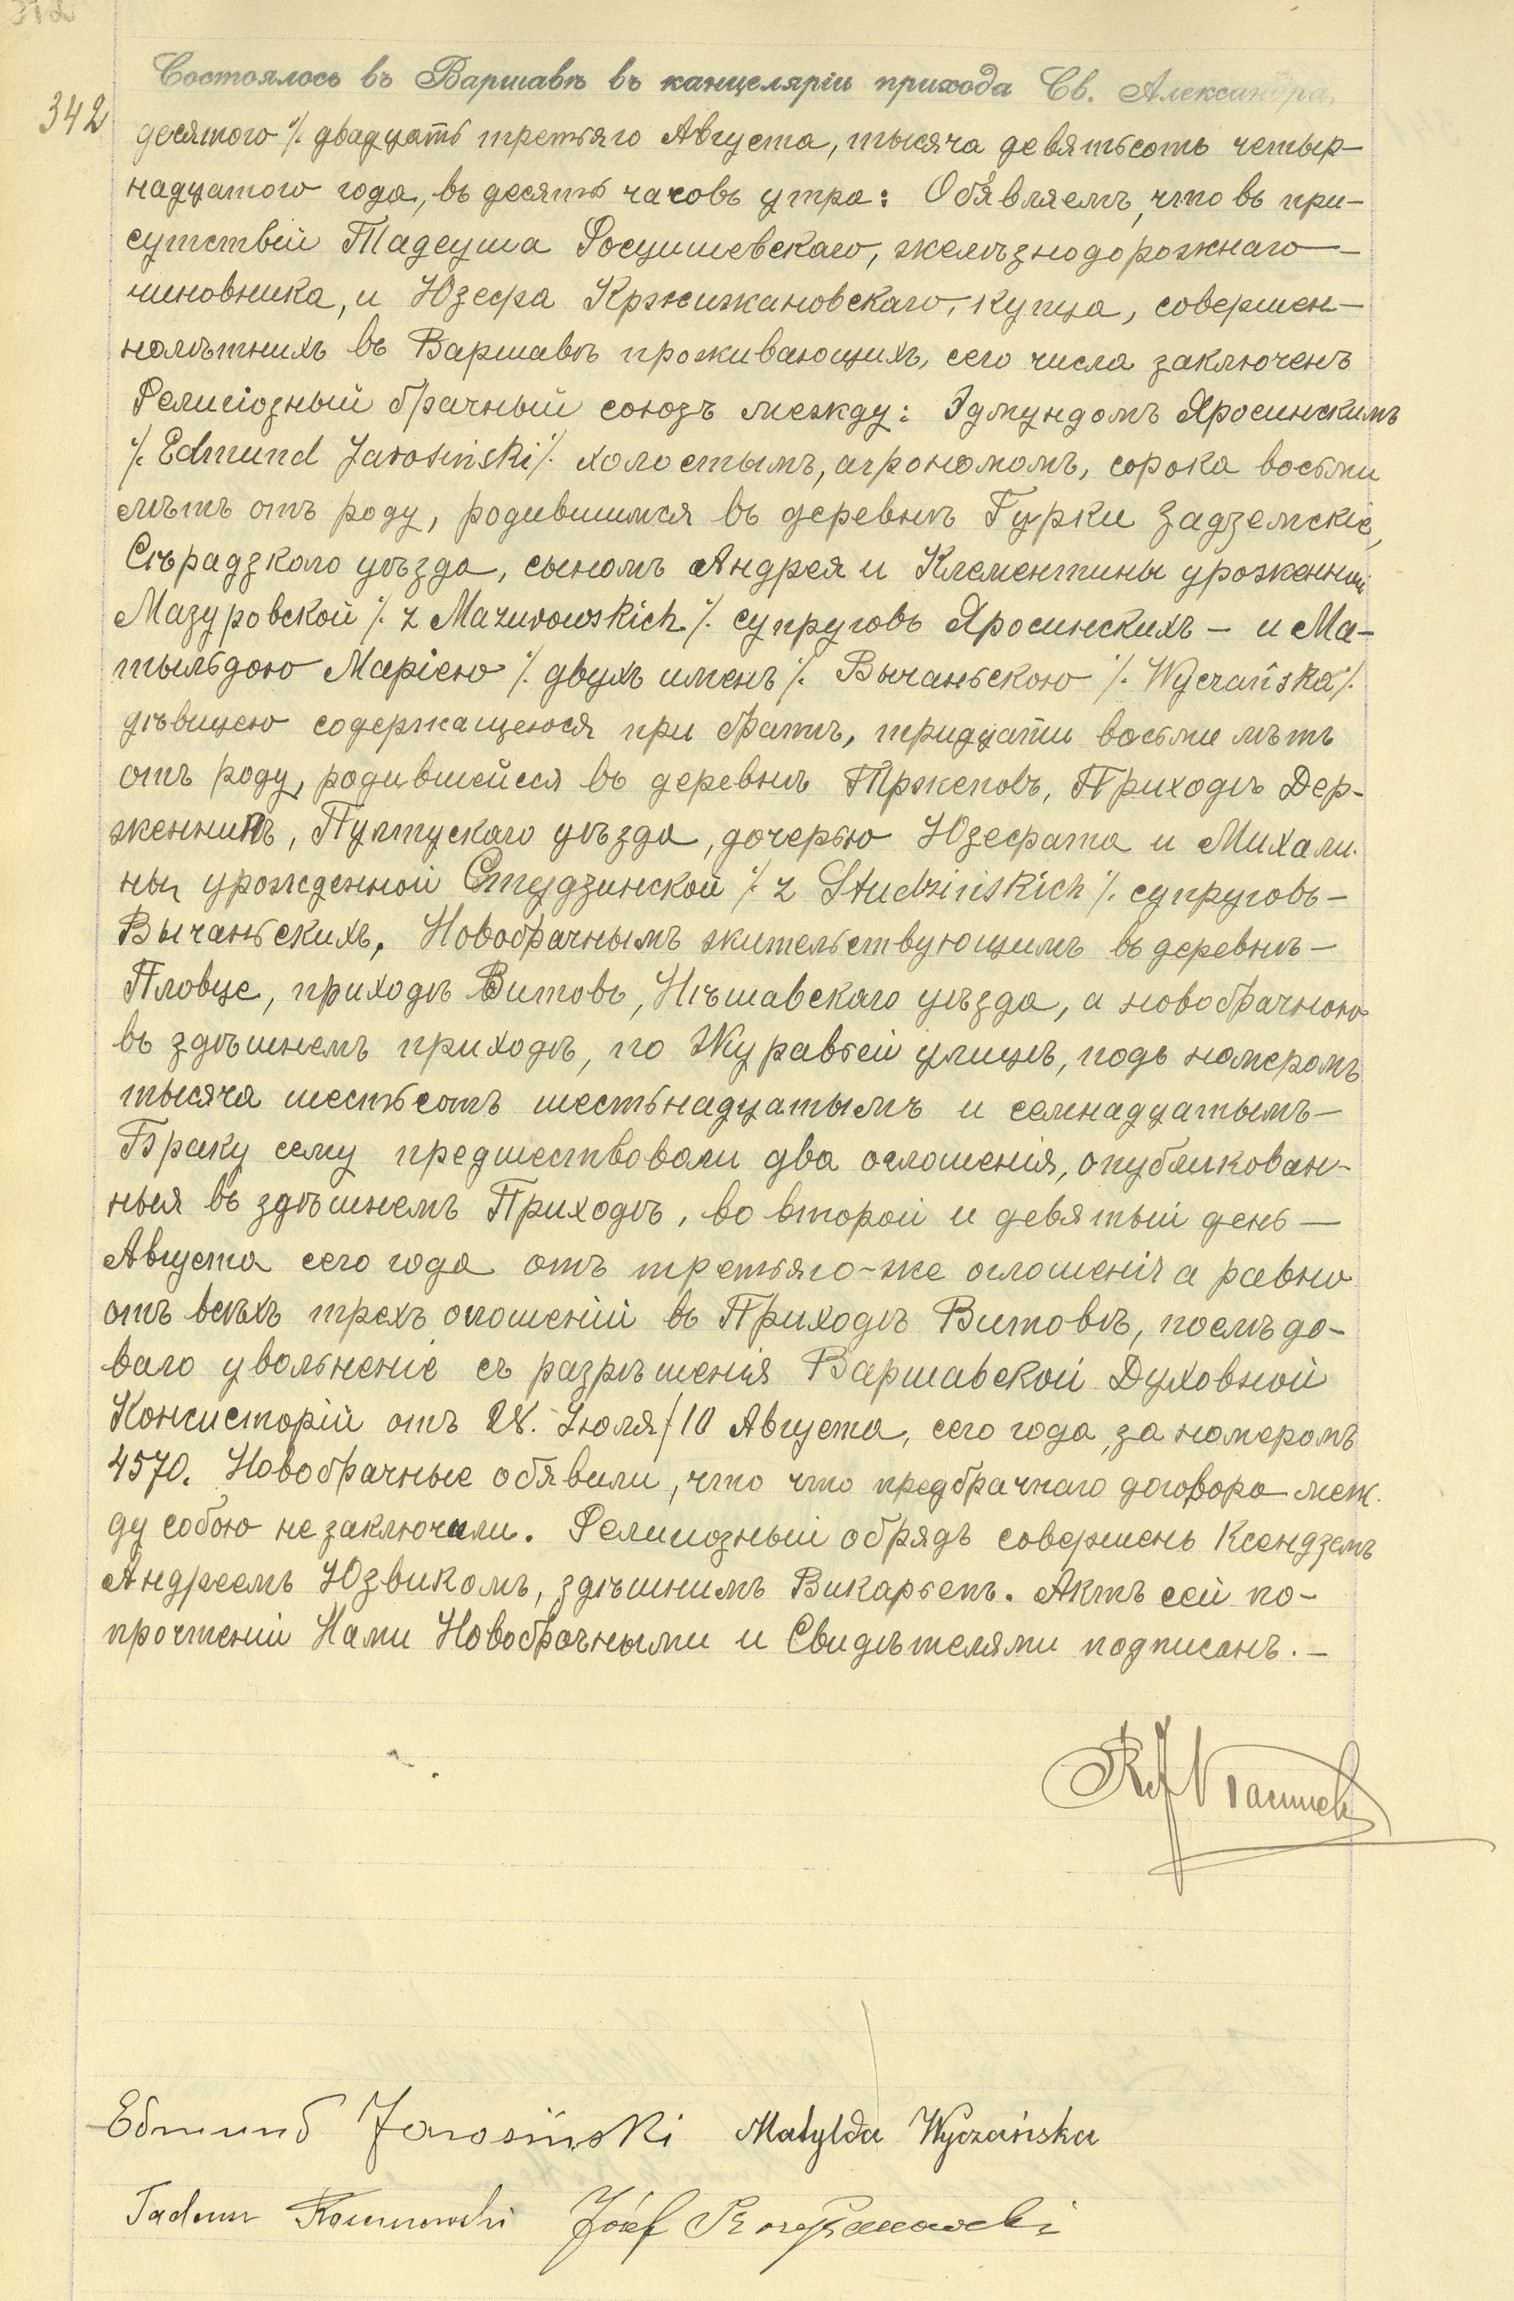 342
Состоялось въ Варшавѣ въ канцеляріи прихода Св. Александра,
десятого /. двадцать третьяго Августа, тысяча девятьсотъ четыр-
надцатого года, въ десять часовъ утра: Обявляемъ, что въ при-
сутствіи Тадеуша Росцишевскаго, желѣзнодорожнаго —
чиновника, и Юзефа Кржижановскаго, купца, совершен-
нолѣтнихъ въ Варшавѣ проживающихъ, сего числа заключенъ
Религіозный брачный союзъ между: Эдмундомъ Яросинскимъ
/. Edmund Jarosiński /. холостымъ, агрономомъ, сорока восьми
лѣтъ отъ роду, родившимся въ деревнѣ Гурки Задземскіе,
Сѣрадзкого уѣзда, сыномъ Андрея и Клементины урожденной
Мазуровской /. z Mazurowskich /. супруговъ Яросинскихъ — и Ма-
тыльдою Маріею /. двухъ именъ /. Вычаньскою /. Wyczańska /.
дѣвицею содержащеюся при братѣ, тридцати восьми лѣтъ
отъ роду, родившейся въ деревнѣ Тржеповъ, Приходѣ Дер-
женинъ, Пултускаго уѣзда, дочерью Юзефата и Михали-
ны урожденной Студзинской /. z Studzińskich /. супруговъ —
Вычаньскихъ, Новобрачнымъ жительствующимъ въ деревнѣ —
Пловце, приходѣ Витовъ, Нѣшавскаго уѣзда, а новобрачною
въ здѣшнемъ приходѣ, по Журавьей улицѣ, подъ номеромъ
тысяча шестьсотъ шестьнадцатымъ и семнадцатымъ —
Браку сему предшествовали два оглошенія, опубликован-
ныя въ здѣшнемъ Приходѣ, во второй и девятый день —
Августа сего года отъ третьяго-же оглошенія а равно
отъ всѣхъ трехъ оглошеній въ Приходѣ Витовѣ, послѣдо-
вало увольненіе съ разрѣшенія Варшавской Духовной
Консисторій отъ 28. Іюля/10 Августа, сего года за номеромъ
4570. Новобрачные обявили, что что предбрачнаго договора меж-
ду собою не заключали. Религіозный обрядъ совершенъ Ксендземъ
Андреемъ Юзвикомъ, здѣшнимъ Викарьемъ. Актъ сей по-
прочтеніи Нами Новобрачными и Свидѣтелями подписанъ. —
Edmund Jarosiński Matylda Wyczańska
Tadeusz Józef